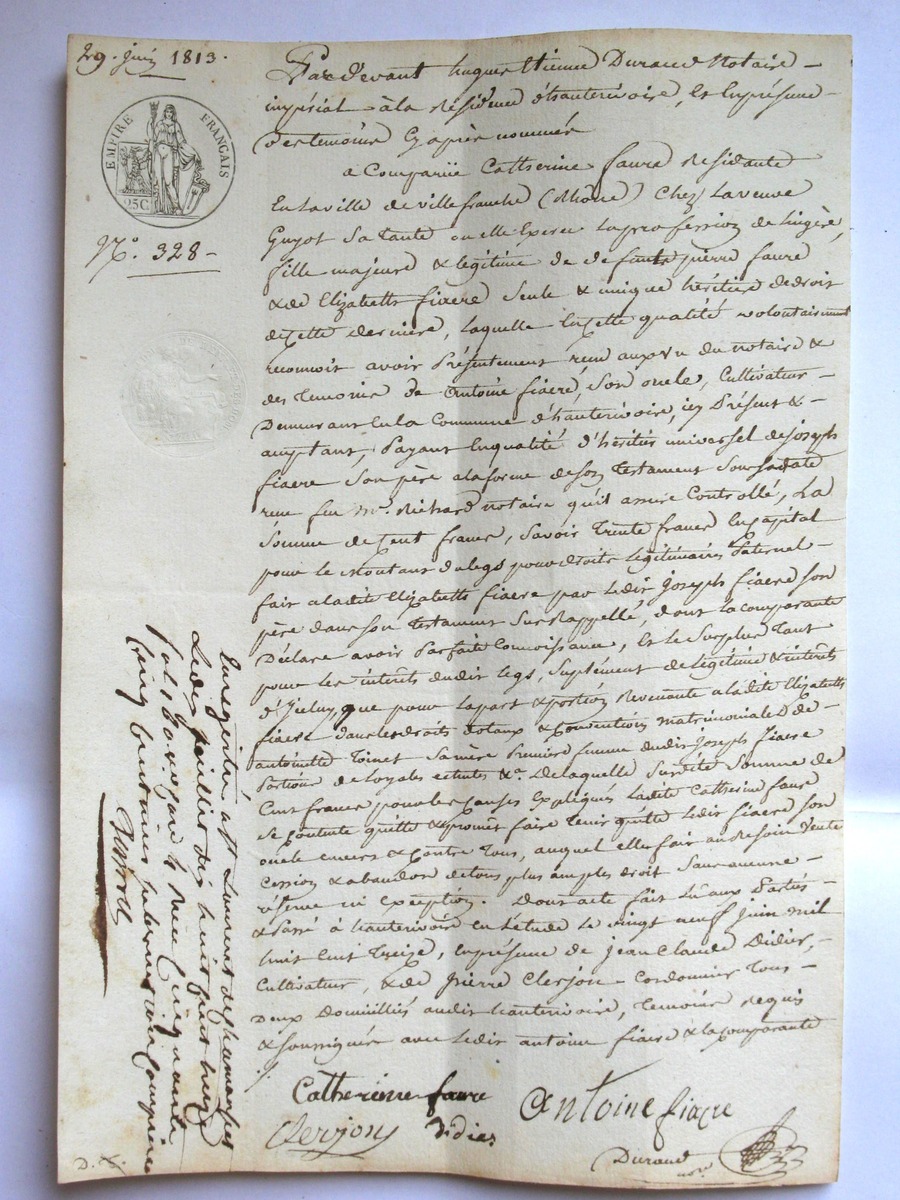 29. juin 1813.
EMPIRE FRANÇAIS
25C
N.° 328-
Pardevant hugues Etienne Durand Notaire -
impérial à la Résidence d'hauterivoire, Et En présence
des temoins Cy après nommés
a Comparüe Catherine faure Residante
En la ville de villefranche (Rhône) Chez La veuve
Guyot Sa tante ou elle Exerce la profession de lingère,
fille majeure & legitime de defunts pierre faure
& de Elizabeth fiacre Seule & unique héritière de droit
de Cette derniere, laquelle En Cette qualité volontairement
reconnoit avoir Présentement reçu aux vu du notaire &
des temoins de antoine fiacre, Son oncle, Cultivateur -
Demeurant En la Commune d'hauterivoire, icy Présent & -
acceptant, Payant En qualité d'héritier universel de joseph
fiacre Son père a la forme de Son testament Sous Sa date
reçu feu Mr. Richard notaire qu'il assure Controllé, La
Somme de Cent francs, Savoir trente francs En Capital
pour le Montant du legs pour droits légitimaires Paternel -
fait a ladite Elizabeth fiacre par ledit Joseph fiacre Son
père dans Son testament Sus Rappellé, dont la Comparante
Déclare avoir Parfaite Connoissance, Et le Surplus tant
pour les interêts dudit legs, Suplément de légitime & interêts
d'Iceluy, que pour la part & portion Revenante a ladite Elizabeth
fiacre dans les droits dotaux & Convention matrimoniale D de -
antoinette Toinet Sa mère Premiere femme dudit Joseph fiacre
Portions de loyales echutes &a. De laquelle Susdite Somme de
Cent francs pour les Causes Expliqués ladite Catherine faure
Se Contente quitte & promet faire tenir quitte ledit fiacre Son
oncle envers & Contre tous, auquel elle fait au besoin vente
Cession & abandon de tous plus amples droit Sans aucune -
réserve ni exception. Dont acte fait Lû aux Parties
& Passé à hauterivoire En l'étude Le vingt neuf juin mil
huit Cent treize, En présence de jean Claude Didier, -
Cultivateur, & de Pierre Clerjon Cordonnier tous -
Deux Domiciliés audit hauterivoire, temoins Requis
& Soussignés avec ledit antoine fiacre & la Comparante
Catherine faure
Antoine fiacre
Clerjon
didier
Durand
not.
Enregistré à St Laurent de chamousset
Le dix juillet dix huit cent treize
fol. reçu Cinquante
Cinq Centimes subvention Comprise
D. X.